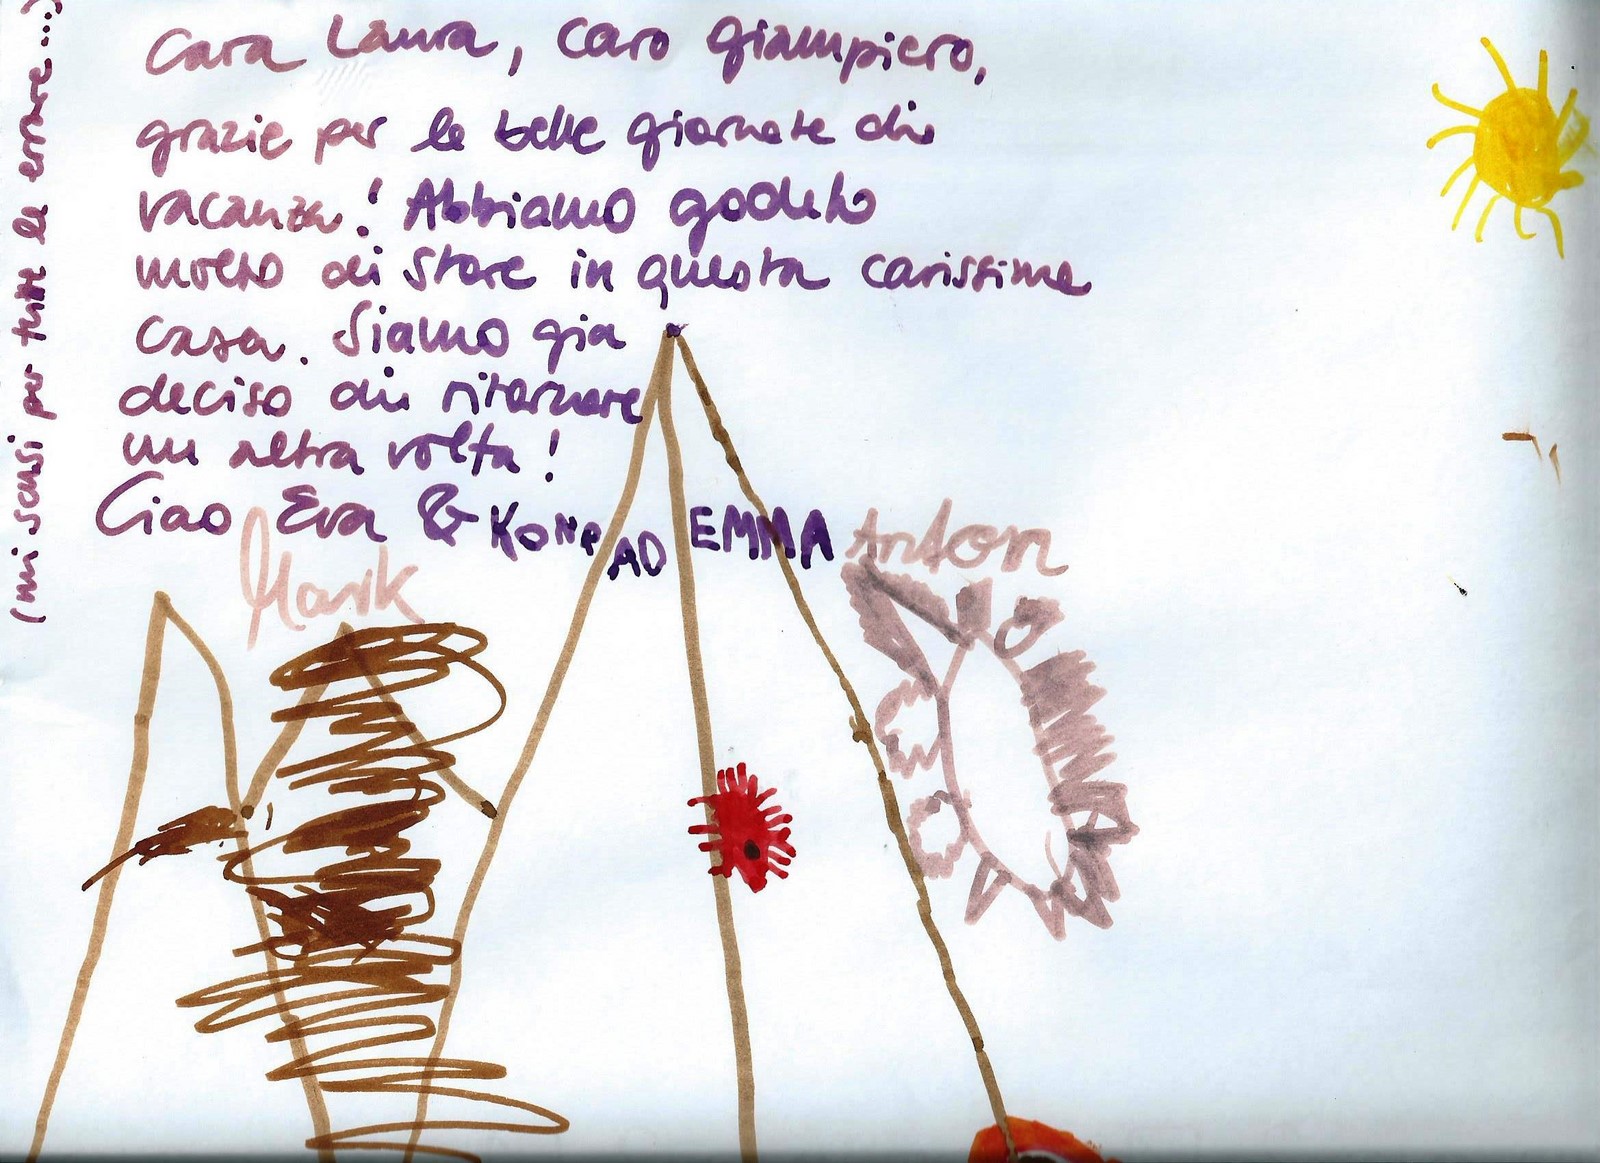 Cara Laura, caro Giampiero,
grazie per le belle giornate di
vacanza! Abbiamo goduto
molto di stare in questa carissima
casa. Siamo gia
deciso di ritornare
un altra volta!
Ciao Eva & KONRAD EMMA Anton
Marik
(mi scusi per tutte le errore....)